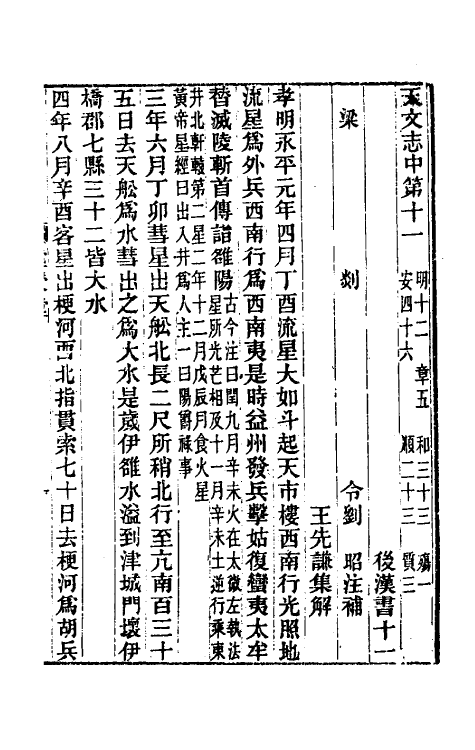 天文志中第十一
明十二 章五 和三十三 殤一
安四十六 順二十三 質三
後漢書十一
梁 剡 令劉 昭注補
王先謙集解
孝明永平元年四月丁酉流星大如斗起天市樓西南行光照地
流星爲外兵西南行爲西南夷是時益州發兵擊姑復蠻夷大牟
替滅陵斬首傳詣雒陽
古今注曰閏九月辛未火在太微左執法
星所光芒相及十一月辛未土逆行乘東
井北軒轅第二星二年十二月戊辰月食火星
黃帝星經曰出入井爲人主一曰陽爵祿事
三年六月丁卯彗星出天船北長二尺所稍北行至亢南百三十
五日去天船爲水彗出之爲大水是歲伊雒水溢到津城門壞伊
橋郡七縣三十二皆大水
四年八月辛酉客星出梗河西北指貫索七十日去梗河爲胡兵